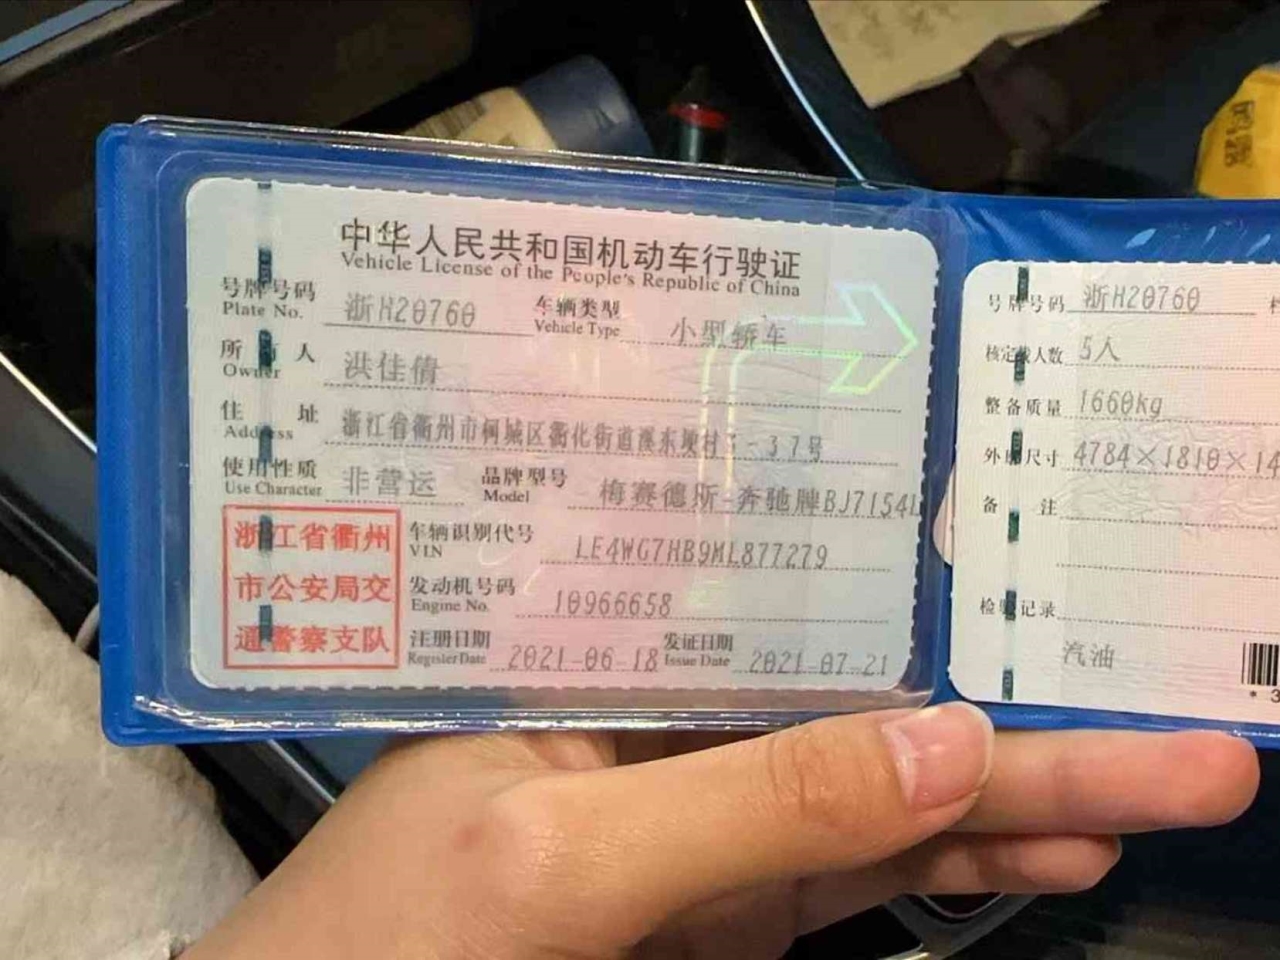 中华人民共和国机动车行驶证
Vehicle License of the People's Republic of China
号牌号码 浙H20760 车辆类型 小型轿车
Plate No. Vehicle Type
所有人 洪佳倩
Owner
住址 浙江省衢州市柯城区衢化街道溪东埂村3-37号
Address
使用性质 非营运 品牌型号 梅赛德斯-奔驰牌BJ7154
Use Character Model
浙江省衢州
市公安局交
通警察支队
车辆识别代号 LE4WG7HB9ML877279
VIN
发动机号码 10966658
Engine No.
注册日期 2021-06-18 发证日期 2021-07-21
Register Date Issue Date
号牌号码 浙H20760
核定载人数 5人
整备质量 1660kg
外廓尺寸 4784×1810×14
备注
检验记录
汽油